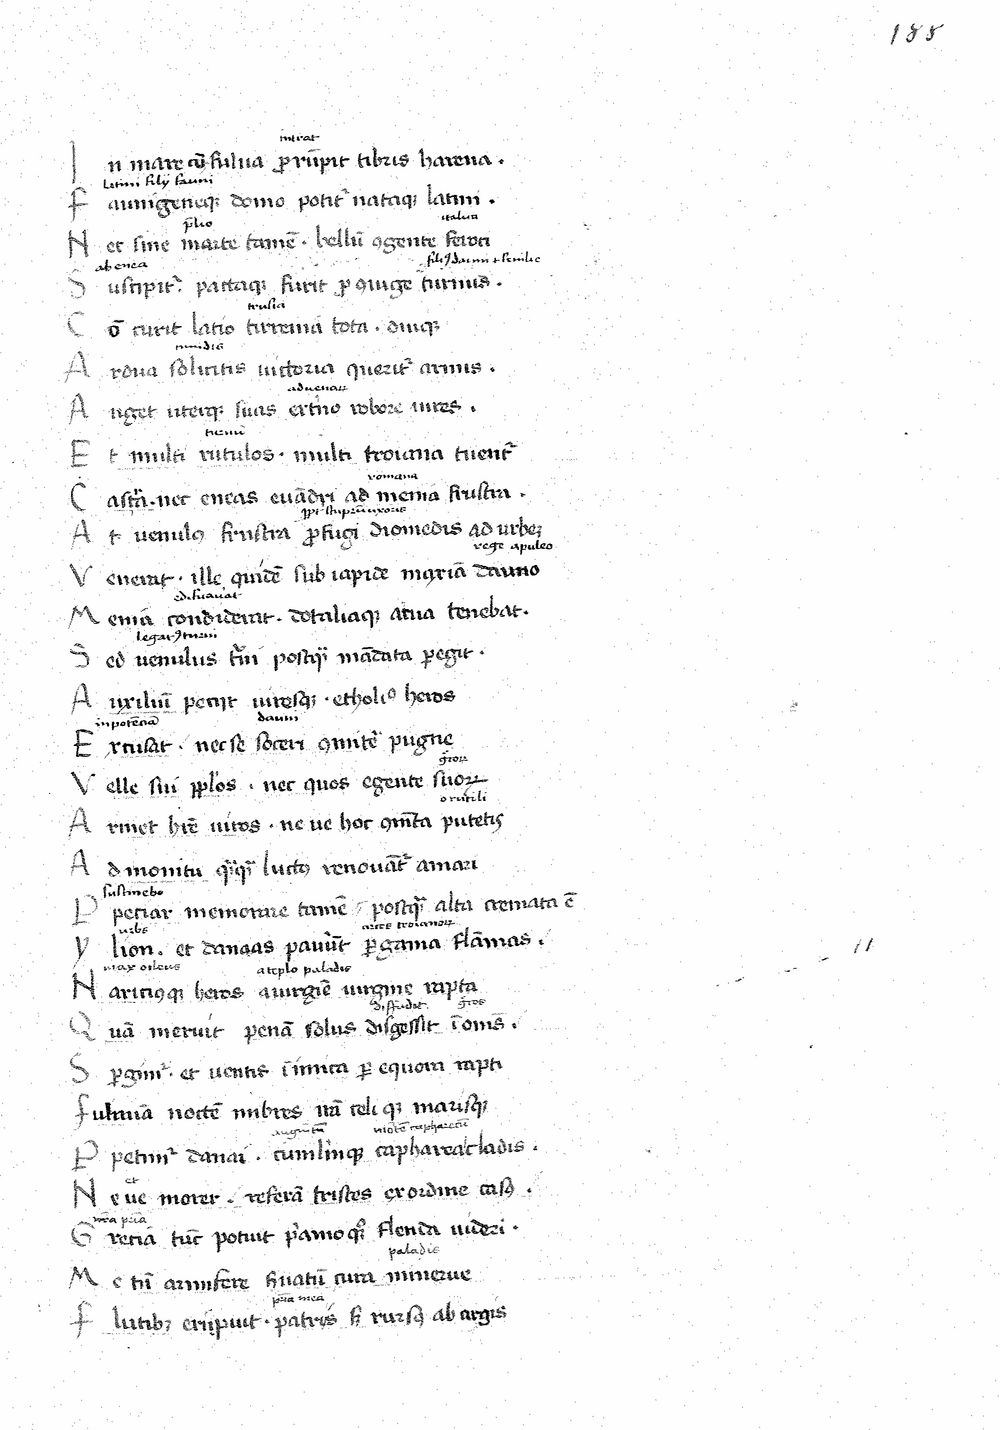 188
intrat
In mare cū fulua ꝓrūpit tibris harena .
latini filij fauni
Faunigeneqꝫ domo potit᷑ nataqꝫ latini .
p̄lio italica
Nec sine marte tamē . bellū ꝯgente feroci
ab enea fili9 dauni
Suscipit᷑ . pactaqꝫ furit ꝓ ꝯiuge turnus .
tuscia
Cō curit latio tirrenia tota . diuqꝫ
Ardua solicitis uictoria querit᷑ armis .
aduenarꝝ
Auget uterqꝫ suas ext̓no robore uires .
turnū
Et multi rutulos . multi troiana tuent᷑
romana
Castra . nec eneas euādri ad menia frustra .
ꝓpt stuprū uxoris
At uenulꝯ frustra ꝓfugi diomedis ad urbeꝫ
rege apuleo
Venerat . ille quidē sub iapide maxīa dauno
edificauat
Menia condiderat . dotaliaqꝫ arua tenebat .
legatꝯ turni
Sed uenulus t̓ni postqᷓ mādata ꝑegit .
Auxiliū petijt uiresqꝫ . etholiꝰ heros
inpotēciā dauni
Excusat . nec se soceri ꝯmite᷑ pugne
Velle sui ꝓplos . nec quos egente suoꝝ
o rutili
Armet hr̄e uiros . ne ue hoc ꝯm̄ta putetis
Admonitu qᷓqᷓ luctꝯ renouāt᷑ amari
sustinebo
Perpetiar memorare tamē . postqᷓ alta cremata ē
urbs arces troianoꝝ
Ylion . et danaas pauer̄t ꝑgama flāmas .
aiax oileus a tēplo paladis
Naritiusqꝫ heros a uirgīe uirgine rapta
diffudit gr̄os
Quā meruit penā solus disgessit ī om̄s .
Spargimᷣ . et uentis īimica ꝑ equora rapti
Fulmina noctē imbres irā celi qꝫ marisqꝫ
mōtē caphareū
Perpetimᷣ danai . cumlūnqꝫ capharea cladis .
et
Ne ue morer . referā tristes ex ordine casꝯ .
mea pr̄ia
Greciā tūc potuit p̓amo qꝫ flenda uideri .
paladis
Me tn̄ armifere ẜuatū cura minerue
pr̄ia mea
Fluctibꝫ eripuit . patriis ẜ rursꝯ ab argis